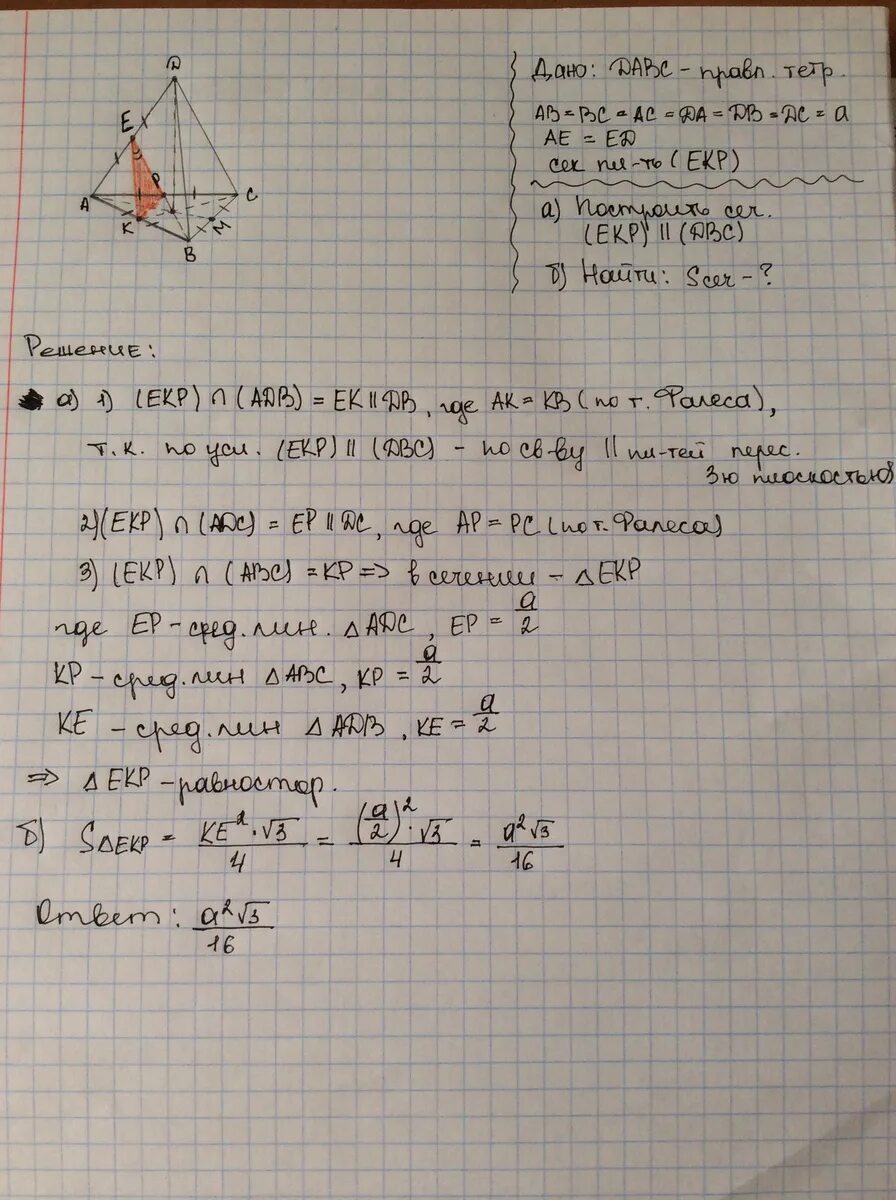 D
E
A
P
C
K
M
B
Дано: DABC - правл. тетр.
AB = BC = AC = DA = DB = DC = a
AE = ED
сек пл-ть (EKP)
а) Построить сеч.
(EKP) || (DBC)
б) Найти: Sсеч - ?
Решение:
а) 1) (EKP) ∩ (ADB) = EK || DB, где AK = KB (по т. Фалеса),
т.к. по усл. (EKP) || (DBC) - по св-ву || пл-тей перес.
3ю плоскостью
2) (EKP) ∩ (ADC) = EP || DC, где AP = PC (по т. Фалеса)
3) (EKP) ∩ (ABC) = KP => в сечении - △EKP
где EP - сред. лин. △ADC, EP = a/2
KP - сред. лин △ABC, KP = a/2
KE - сред. лин △ADB, KE = a/2
=> △EKP - равностор.
б) S△EKP = KE²·√3/4 = (a/2)²·√3/4 = a²√3/16
Ответ: a²√3/16